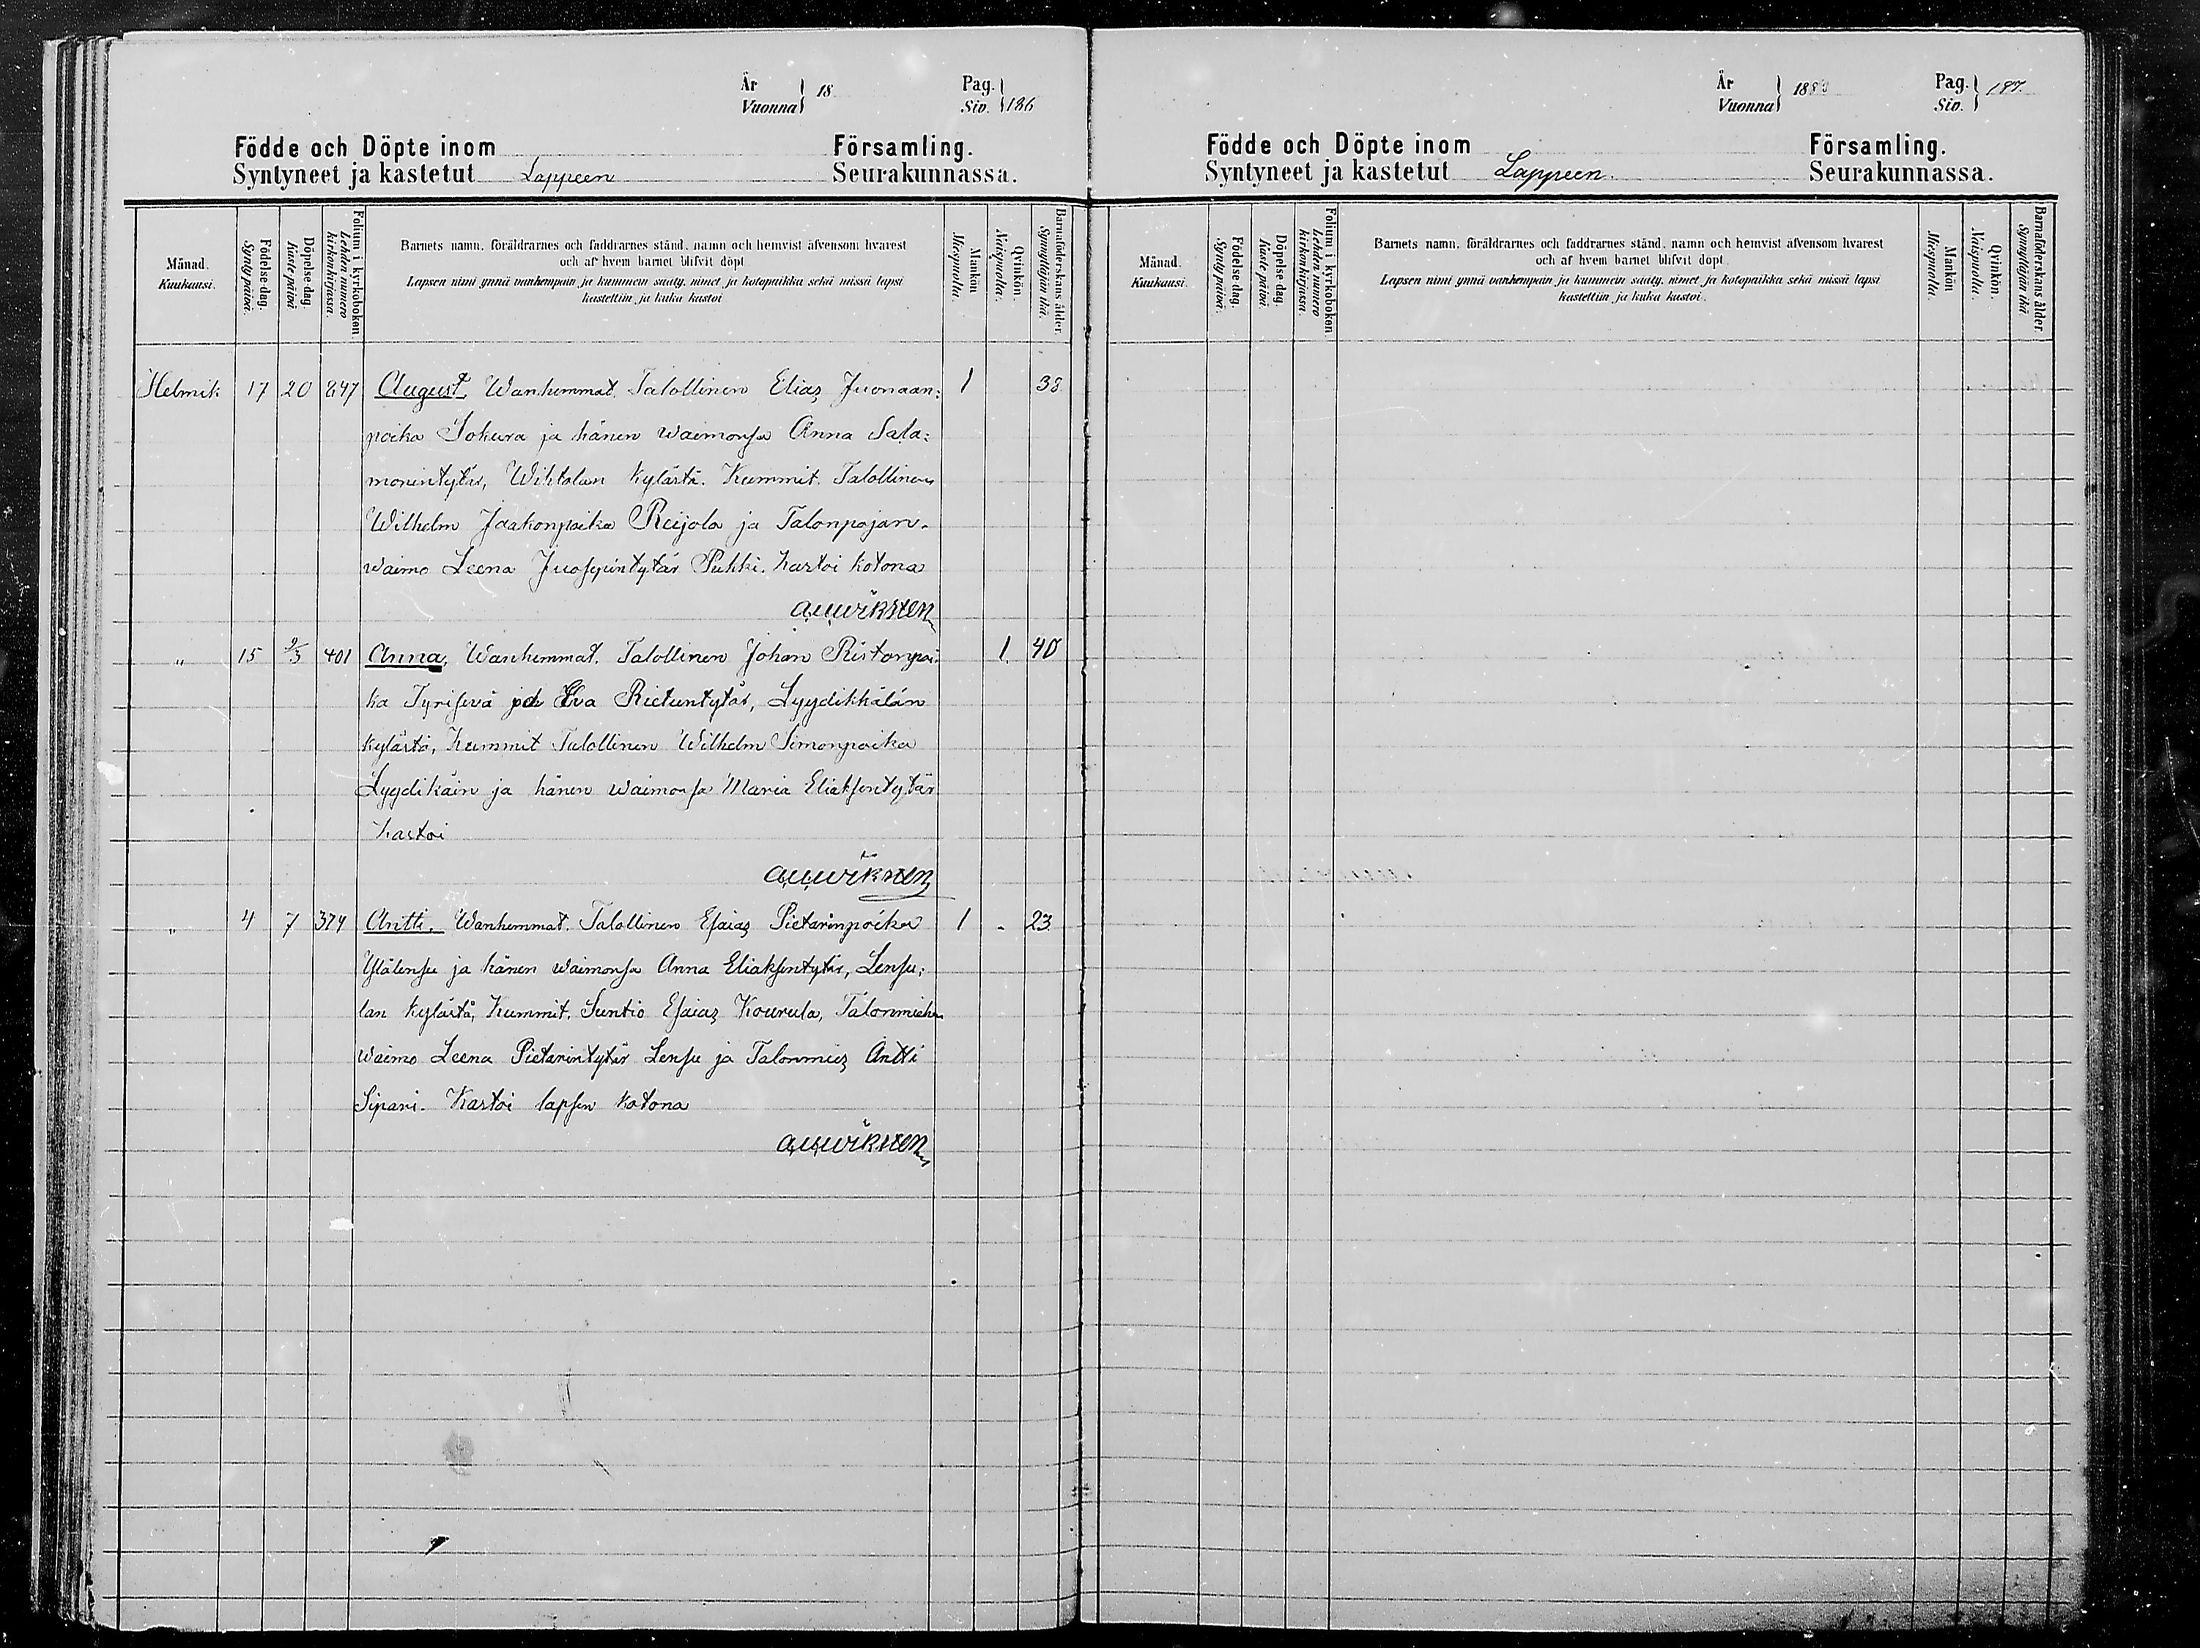 År
Vuonna } 18
Pag.
Siv. } 186
Födde och Döpte inom Församling.
Syntyneet ja kastetut Lappeen Seurakunnassa.
Månad.
Kuukausi.
Födelse-dag.
Syntypäivä.
Döpelse-dag.
Kaste päivä
Folium i kyrkoboken.
Lehden numero
kirkonkirjassa.
Barnets namn, föräldrarnes och faddrarnes stånd, namn och hemvist äfvensom hvarest
och af hvem barnet blifvit döpt
Lapsen nimi ynnä vanhempain ja kummein sääty, nimet ja kotopaikka sekä missä lapsi
kastettiin ja kuka kastoi
Mankön
Miespuolia.
Qvinkön.
Naispuolia.
Barnaföderskans ålder.
Synnyttäjän ikä.
Helmik. 17 20 847 August. Wanhemmat. Talollinen Elias Juonaan: 1 38
poika Sokura ja hänen waimonsa Anna Sala:
monintytär, Wihtolan kylästä. Kummit. Talollinen
Wilhelm Jaakonpoika Reijola ja Talonpojan-
waimo Leena Juosepintytär Pukki. Kastoi kotona
" 15 2/3 401 Anna. Wanhemmat. Talollinen Johan Ristonpoi- 1. 40
ka Tyrisevä ja Eva Rietuntytär, Lyydikkälän
kylästä, Kummit Talollinen Wilhelm Simonpoika
Lyydikäin ja hänen waimonsa Maria Eliaksentytär
Kastoi
" 4 7 374 Antti. Wanhemmat. Talollinen Esaias Pietarinpoika 1 - 23
Ylälensu ja hänen waimonsa Anna Eliaksentytär, Lensu:
lan kylästä, Kummit. Suntio Esaias Kourula, Talonmiehen
waimo Leena Pietarintytär Lensu ja Talonmies Antti
Sipari. Kastoi lapsen kotona
År
Vuonna } 188
Pag.
Siv. } 187.
Födde och Döpte inom Församling.
Syntyneet ja kastetut Lappeen. Seurakunnassa.
Månad.
Kuukausi.
Födelse-dag.
Synty päivä.
Döpelse-dag.
Kaste päivä.
Folium i kyrkoboken.
Lehden numero
kirkonkirjassa.
Barnets namn, föräldrarnes och faddrarnes stånd, namn och hemvist äfvensom hvarest
och af hvem barnet blifvit döpt.
Lapsen nimi ynnä vanhempain ja kummein sääty, nimet ja kotopaikka sekä missä lapsi
kastettiin ja kuka kastoi.
Mankön
Miespuolia.
Qvinkön.
Naispuolia.
Barnaföderskans ålder.
Synnyttäjän ikä